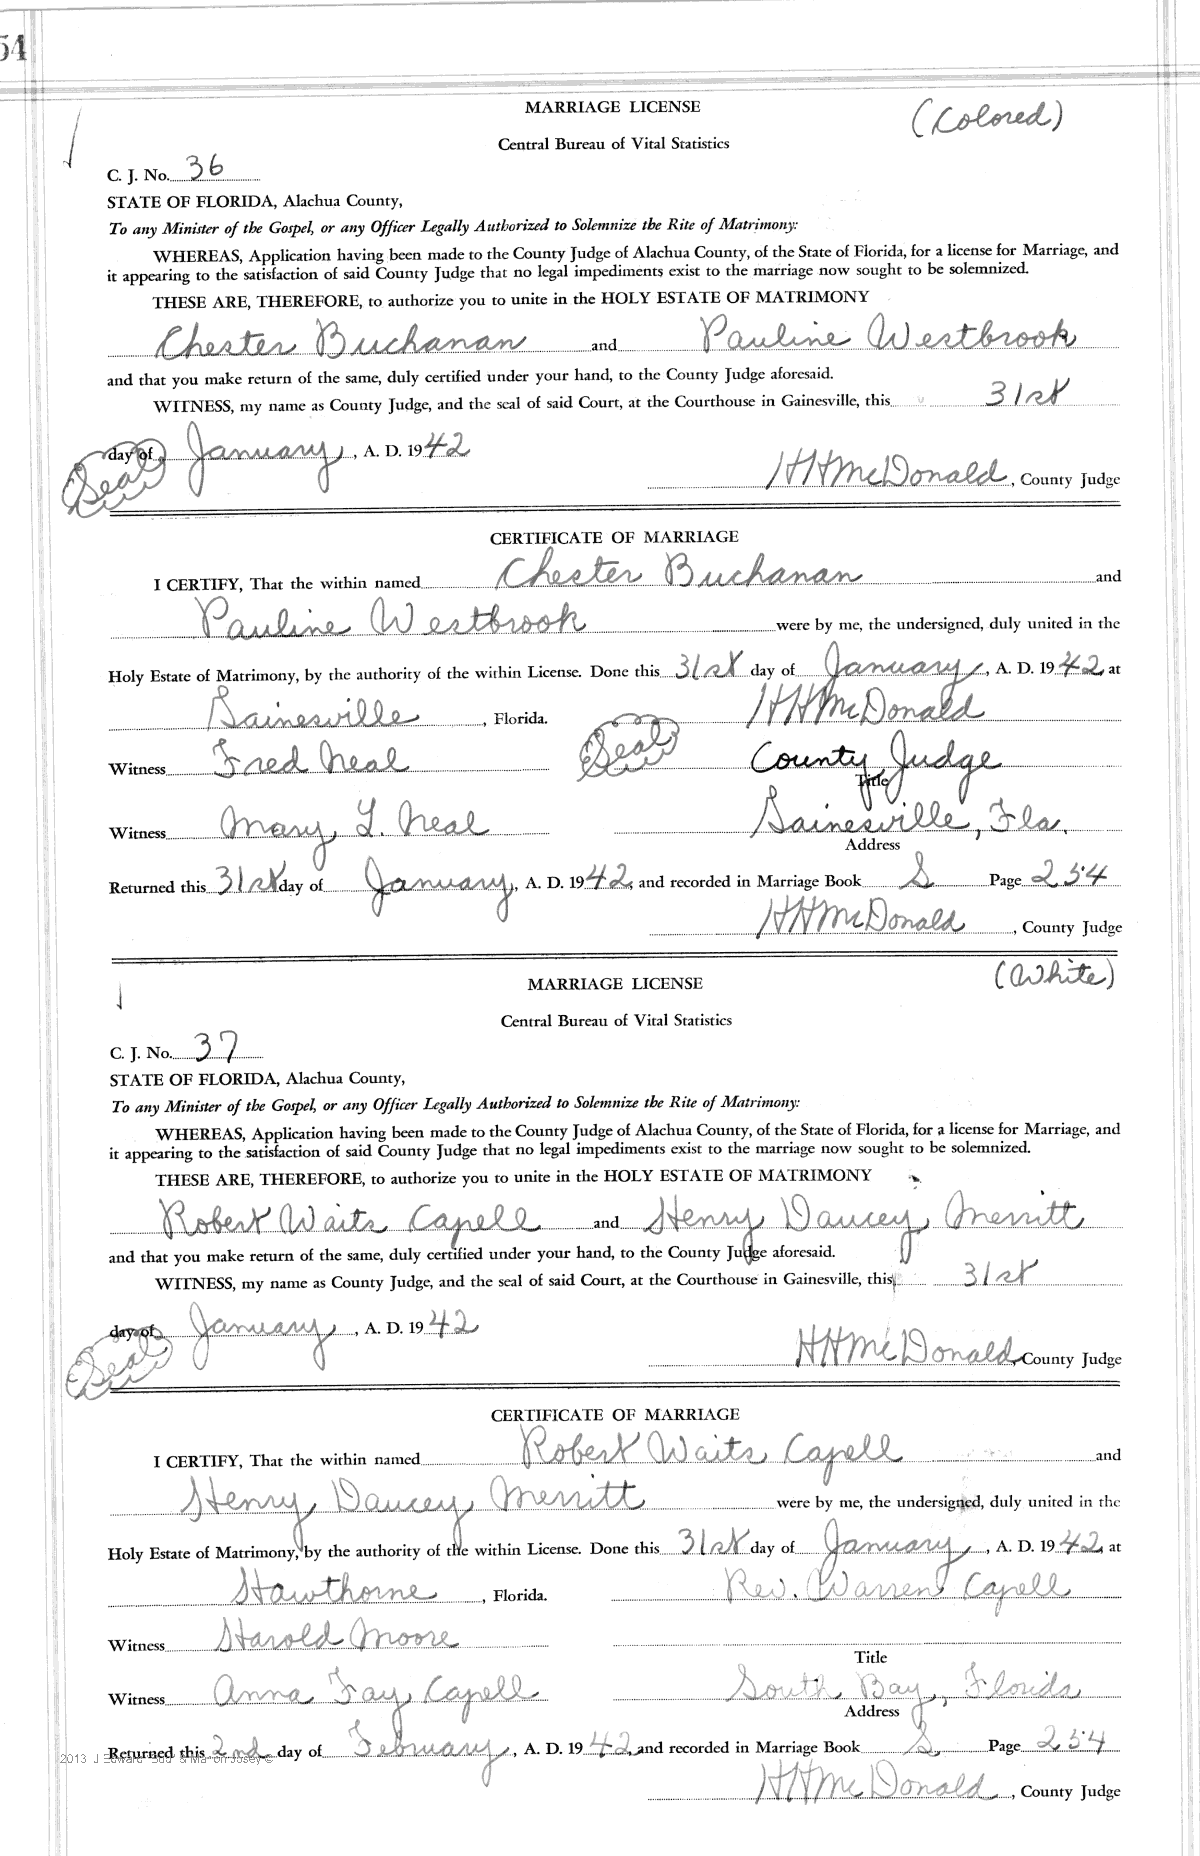 54
MARRIAGE LICENSE
(Colored)
Central Bureau of Vital Statistics
C. J. No. 36
STATE OF FLORIDA, Alachua County,
To any Minister of the Gospel, or any Officer Legally Authorized to Solemnize the Rite of Matrimony:
WHEREAS, Application having been made to the County Judge of Alachua County, of the State of Florida, for a license for Marriage, and
it appearing to the satisfaction of said County Judge that no legal impediments exist to the marriage now sought to be solemnized.
THESE ARE, THEREFORE, to authorize you to unite in the HOLY ESTATE OF MATRIMONY
Chester Buchanan and Pauline Westbrook
and that you make return of the same, duly certified under your hand, to the County Judge aforesaid.
WITNESS, my name as County Judge, and the seal of said Court, at the Courthouse in Gainesville, this 31st
day of January, A. D. 1942
(Seal) HHMcDonald, County Judge
CERTIFICATE OF MARRIAGE
I CERTIFY, That the within named Chester Buchanan and
Pauline Westbrook were by me, the undersigned, duly united in the
Holy Estate of Matrimony, by the authority of the within License. Done this 31st day of January, A. D. 1942, at
Gainesville, Florida. HHMcDonald
Witness Fred Neal (Seal) County Judge
Title
Witness Mary L. Neal Gainesville, Fla.
Address
Returned this 31st day of January, A. D. 1942, and recorded in Marriage Book S Page 254
HHMcDonald, County Judge
MARRIAGE LICENSE
(White)
Central Bureau of Vital Statistics
C. J. No. 37
STATE OF FLORIDA, Alachua County,
To any Minister of the Gospel, or any Officer Legally Authorized to Solemnize the Rite of Matrimony:
WHEREAS, Application having been made to the County Judge of Alachua County, of the State of Florida, for a license for Marriage, and
it appearing to the satisfaction of said County Judge that no legal impediments exist to the marriage now sought to be solemnized.
THESE ARE, THEREFORE, to authorize you to unite in the HOLY ESTATE OF MATRIMONY
Robert Waits Capell and Henry Daucey Merritt
and that you make return of the same, duly certified under your hand, to the County Judge aforesaid.
WITNESS, my name as County Judge, and the seal of said Court, at the Courthouse in Gainesville, this 31st
day of January, A. D. 1942
(Seal) HHMcDonald, County Judge
CERTIFICATE OF MARRIAGE
I CERTIFY, That the within named Robert Waits Capell and
Henry Daucey Merritt were by me, the undersigned, duly united in the
Holy Estate of Matrimony, by the authority of the within License. Done this 31st day of January, A. D. 1942, at
Hawthorne, Florida. Rev. Warren Capell
Witness Harold Moore
Title
Witness Anna Fay Capell South Bay, Florida
Address
Returned this 2nd day of February, A. D. 1942, and recorded in Marriage Book S, Page 254
2013 J Edward
HHMcDonald, County Judge